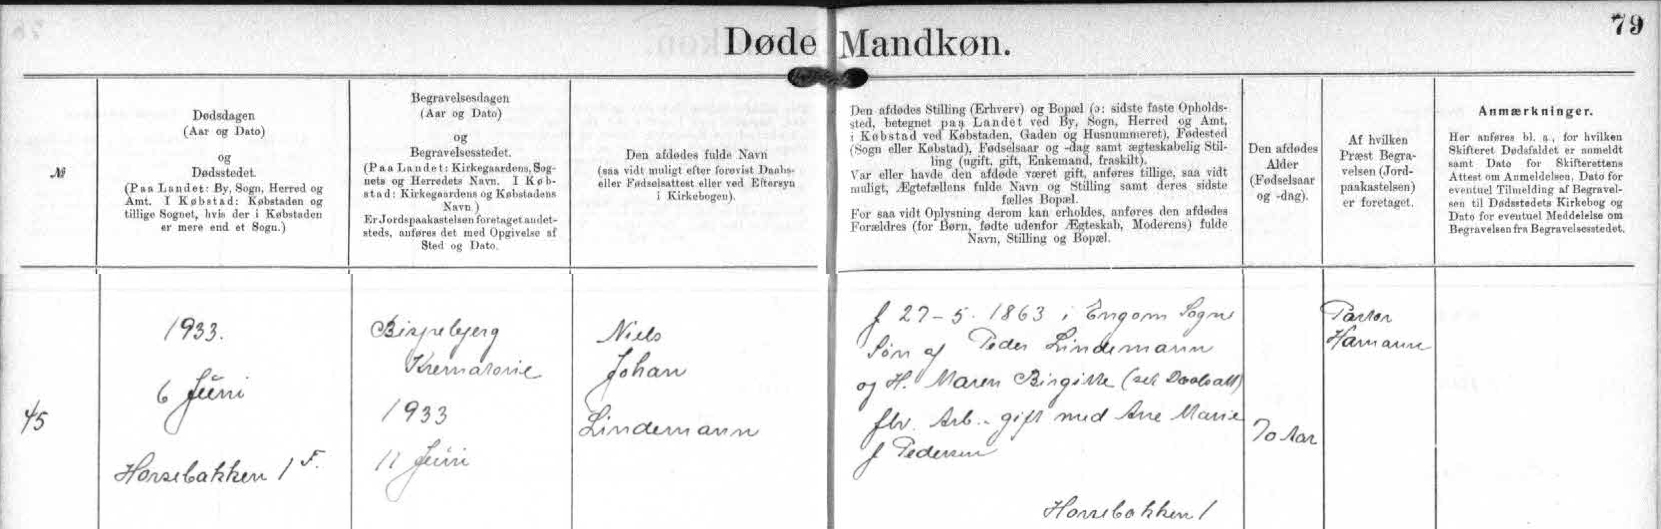 79
Døde Mandkøn.
№
Dødsdagen
(Aar og Dato)
og
Dødsstedet.
(Paa Landet: By, Sogn, Herred og
Amt. I Købstad: Købstaden og
tillige Sognet, hvis der i Købstaden
er mere end et Sogn.)
Begravelsesdagen
(Aar og Dato)
og
Begravelsesstedet.
(Paa Landet: Kirkegaardens, Sog-
nets og Herredets Navn. I Køb-
stad: Kirkegaardens og Købstadens
Navn.)
Er Jordspaakastelsen foretaget andet-
steds, anføres det med Opgivelse af
Sted og Dato.
Den afdødes fulde Navn
(saa vidt muligt efter forevist Daabs-
eller Fødselsattest eller ved Eftersyn
i Kirkebogen).
Den afdødes Stilling (Erhverv) og Bopæl (ɔ: sidste faste Opholds-
sted, betegnet paa Landet ved By, Sogn, Herred og Amt,
i Købstad ved Købstaden, Gaden og Husnummeret), Fødested
(Sogn eller Købstad), Fødselsaar og -dag samt ægteskabelig Stil-
ling (ugift, gift, Enkemand, fraskilt).
Var eller havde den afdøde været gift, anføres tillige, saa vidt
muligt, Ægtefællens fulde Navn og Stilling samt deres sidste
fælles Bopæl.
For saa vidt Oplysning derom kan erholdes, anføres den afdødes
Forældres (for Børn, fødte udenfor Ægteskab, Moderens) fulde
Navn, Stilling og Bopæl.
Den afdødes
Alder
(Fødselsaar
og -dag).
Af hvilken
Præst Begra-
velsen (Jord-
paakastelsen)
er foretaget.
Anmærkninger.
Her anføres bl. a., for hvilken
Skifteret Dødsfaldet er anmeldt
samt Dato for Skifterettens
Attest om Anmeldelsen, Dato for
eventuel Tilmelding af Begravel-
sen til Dødsstedets Kirkebog og
Dato for eventuel Meddelelse om
Begravelsen fra Begravelsesstedet.
45
1933.
6 Juni
Horsebakken 1 F.
Bispebjerg
Krematorie
1933
11 Juni
Niels
Johan
Lindemann
f 27-5. 1863 i Engom Sogn
Søn af Peder Lindemann
og H. Maren Birgitte
fhv. Arb. - gift med Ane Marie
f Pedersen
Horsebakken 1
70 Aar
Pastor
Hamann